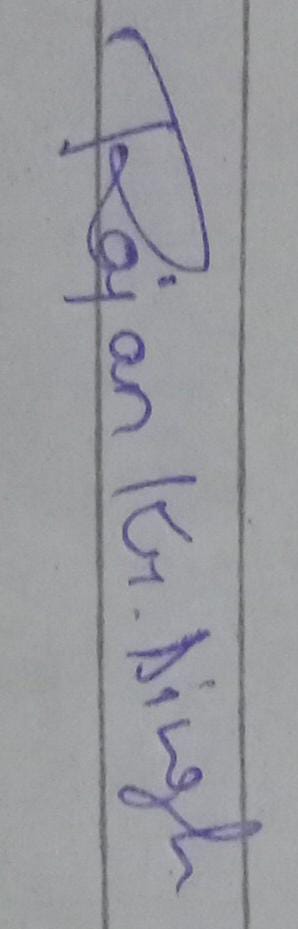 Rajan Kr. Singh